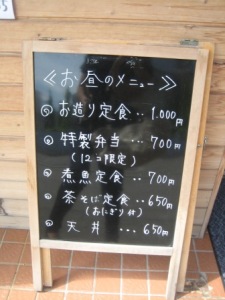 ≪お昼のメニュー≫
お造り定食‥1.000円
特製弁当‥700円
(12コ限定)
煮魚定食‥700円
茶そば定食‥650円
(おにぎり付)
天丼‥650円